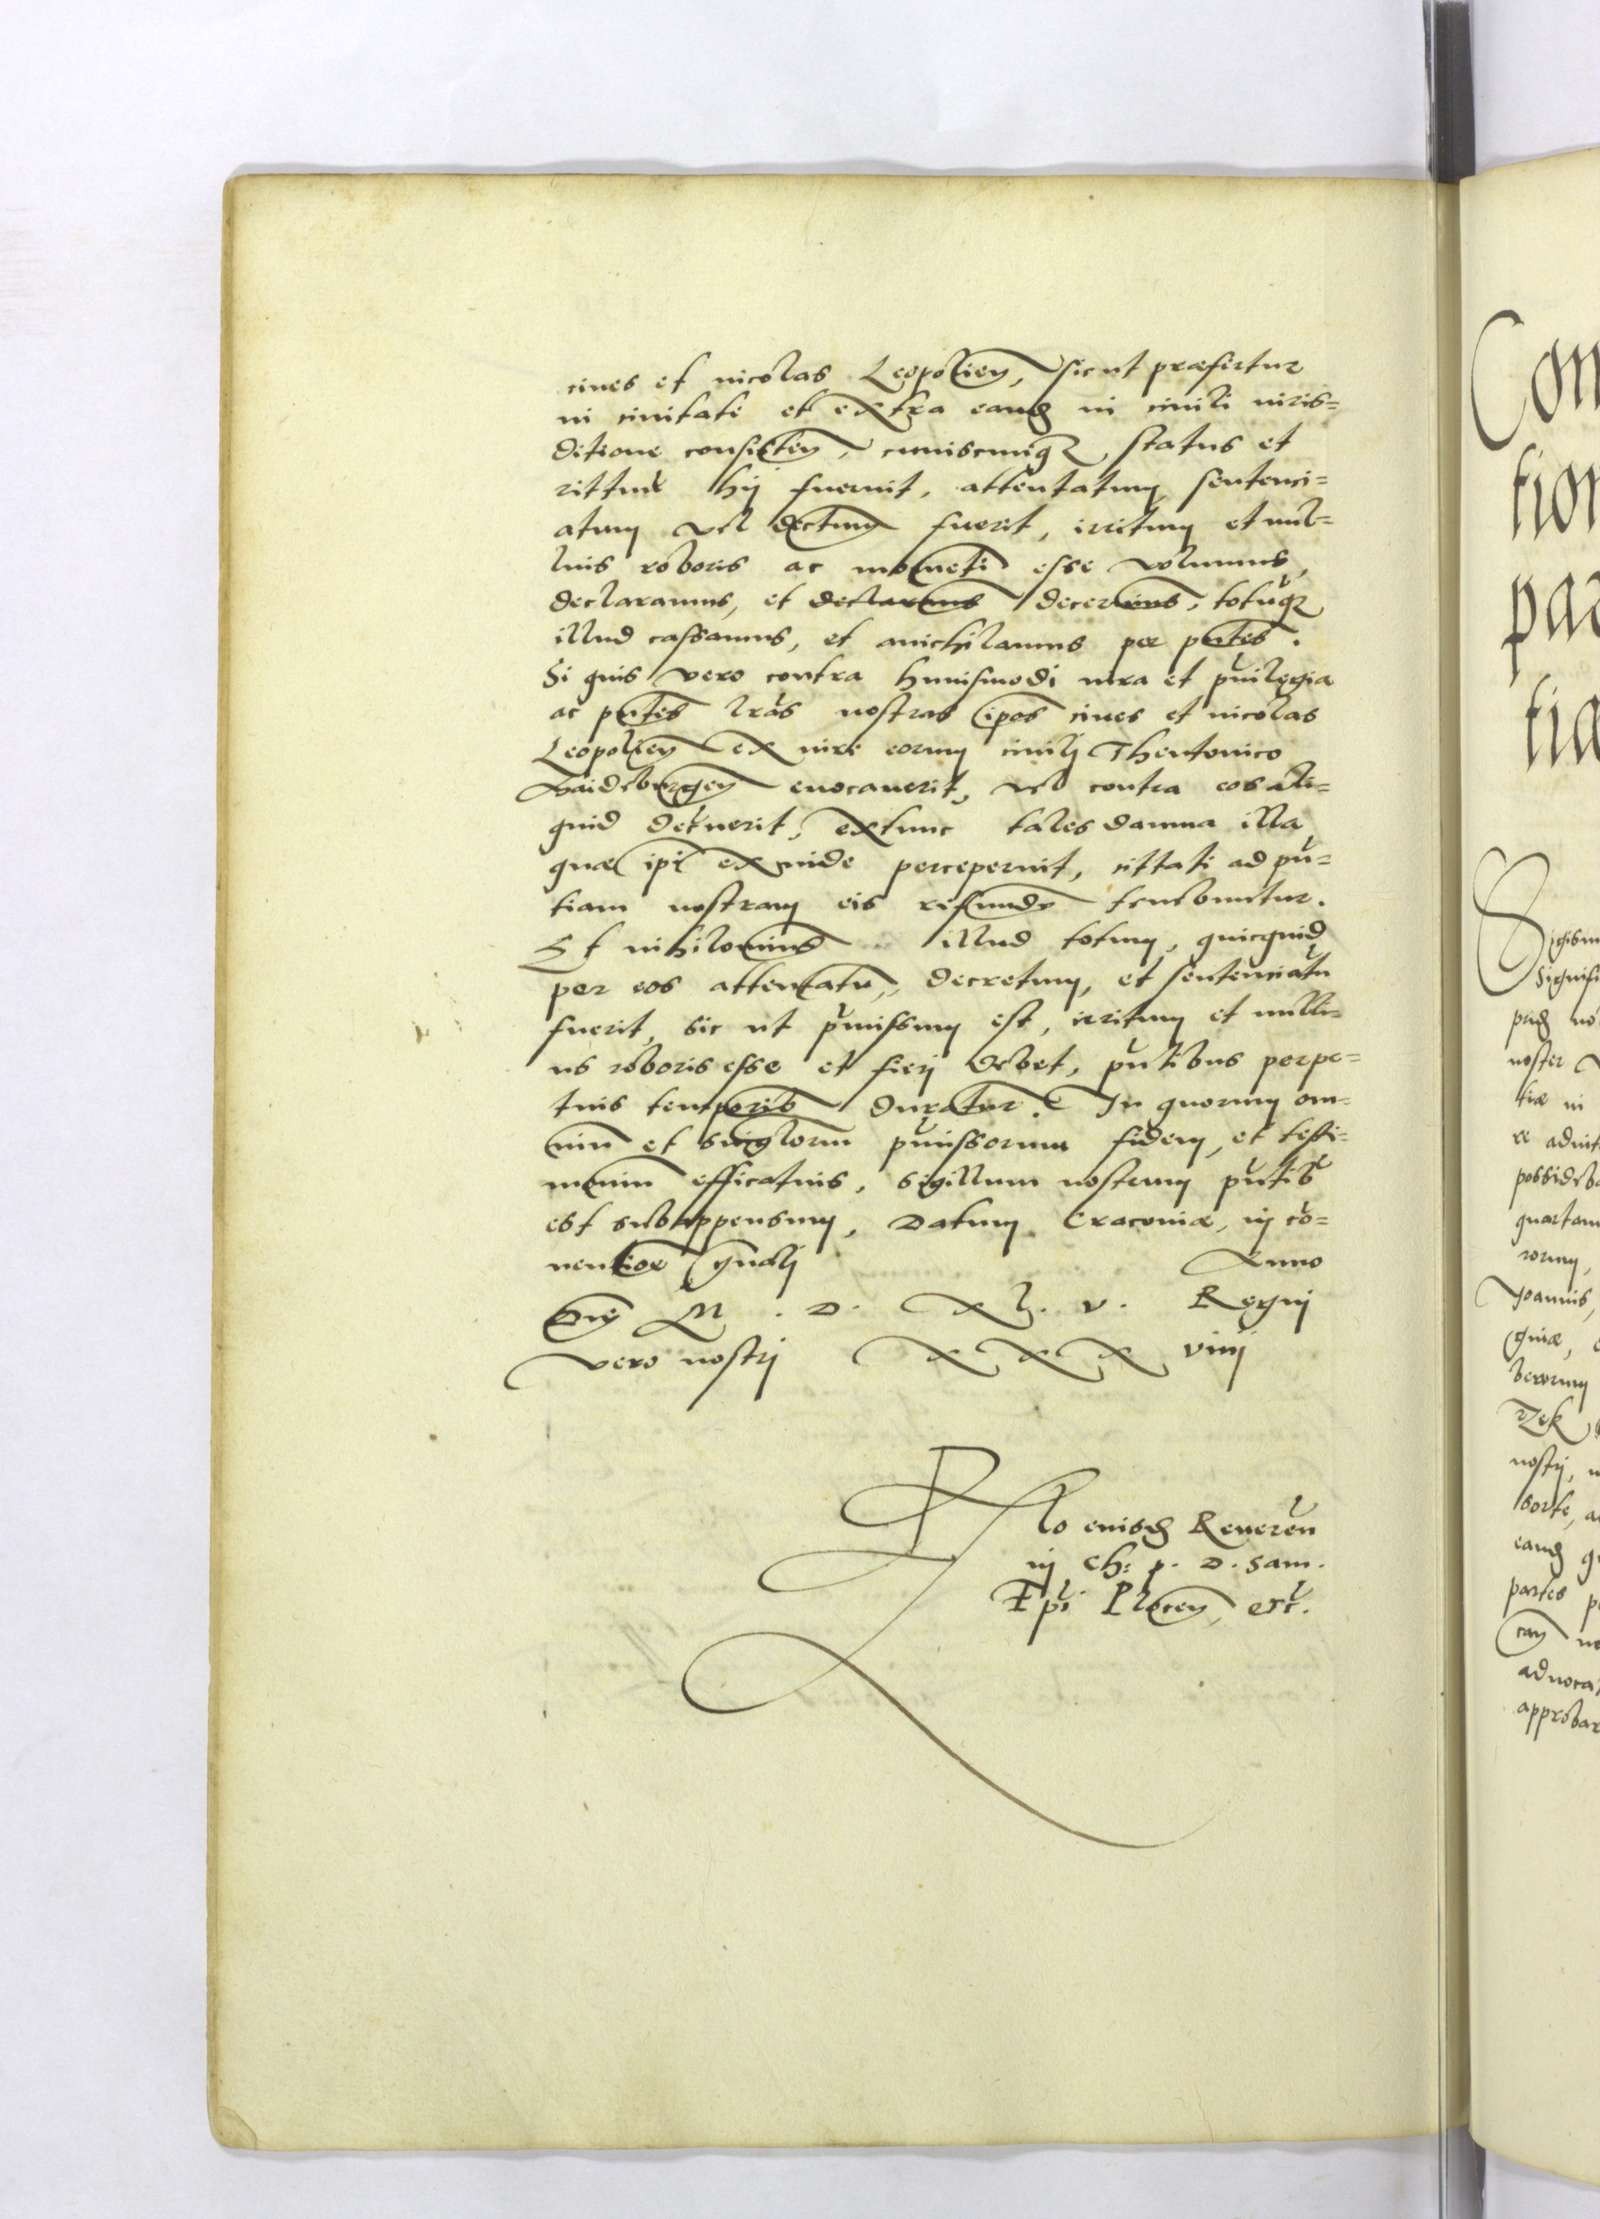 ciues et incolas Leopolien, sicut præfertur
in ciuitate et extra eand in ciuili iuris=
ditione consisten, cuiuscunq status et
rittus hij fuerint, attentatum, sentenci=
atum vel dectum fuerit, irritum et nul=
lius roboris ac mometi esse volumus,
declaramus, et declaramus decernims, totuq
illud cassamus, et anichilamus per pntes.
Si quis vero contra huiusmodi iura et puilegia
ac pntes lras nostras ipos ciues et incolas
Leopolien ex iure eorum ciuilj Theutonico
Maideburgen euocauerit, vel contra eos ali=
quid decuerit, extunc tales damna illa
quæ ipi ex inde perceperint, cittati ad pn=
tiam nostram eis refundere tenebuntur.
Et nihilominus illud totum, quicquid
per eos attentatu, decretum, et sentenciatu
fuerit, sic ut pmissum est, irritum et nulli=
us roboris esse et fierj debet, pntibus perpe=
tuis temporib duratur. In quorum om=
niu et singlorm pmissorum fidem, et testi=
moniu efficatius, sigillum nostrum pntib
est subappensum, Datum Cracouiæ, in co=
uentioe gnalj Anno
Dnj M . D . XL . V . Regnj
vero nostrj XXX viiij
Rlo eiusd Reueren
in Ch: p. D. Sam.
Epi Plocen, etc.
Con
tion
par
tia
Sigism
Signifi
prid no
noster
tiæ in
re aduit
possideba
quartam
rorum,
Joannis,
ginæ,
berorum
rzek
nostrj,
sorte,
eand
partes
can
aduoca
approbar